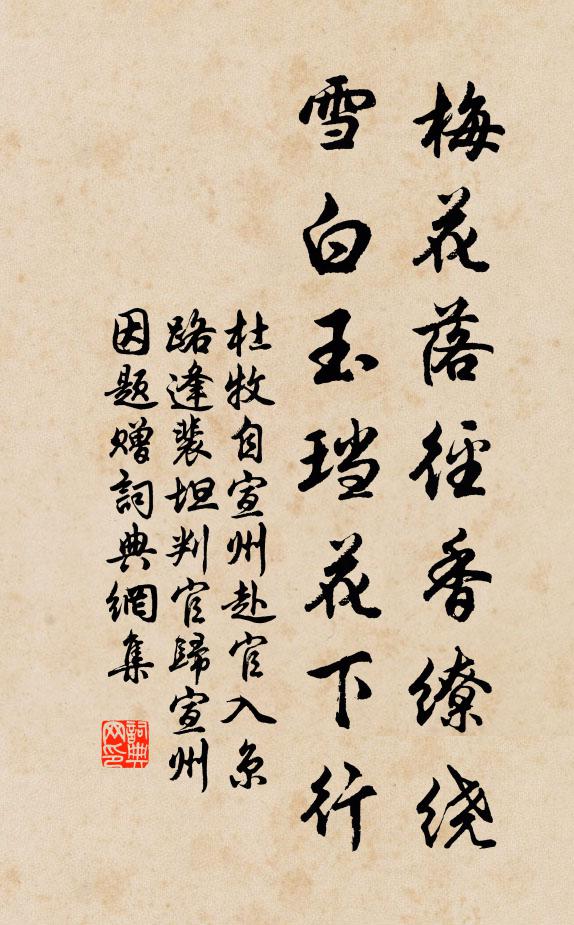 梅花落径香缭绕
雪白玉珰花下行
杜牧自宣州赴官入京
路逢裴坦判官歸宣州
因题赠詞典網集
詞典
网印